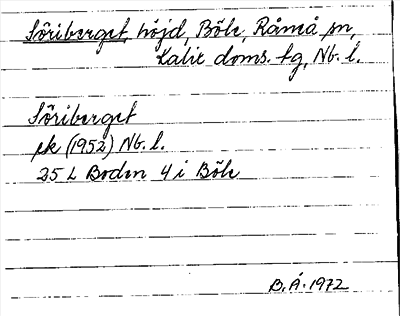 Söriberget, höjd, Böle, Råneå sn,
Kalix doms. tg, Nb. l.
Söriberget
ek (1952) Nb. l.
25 L Boden 4 i Böle
B.Å. 1972